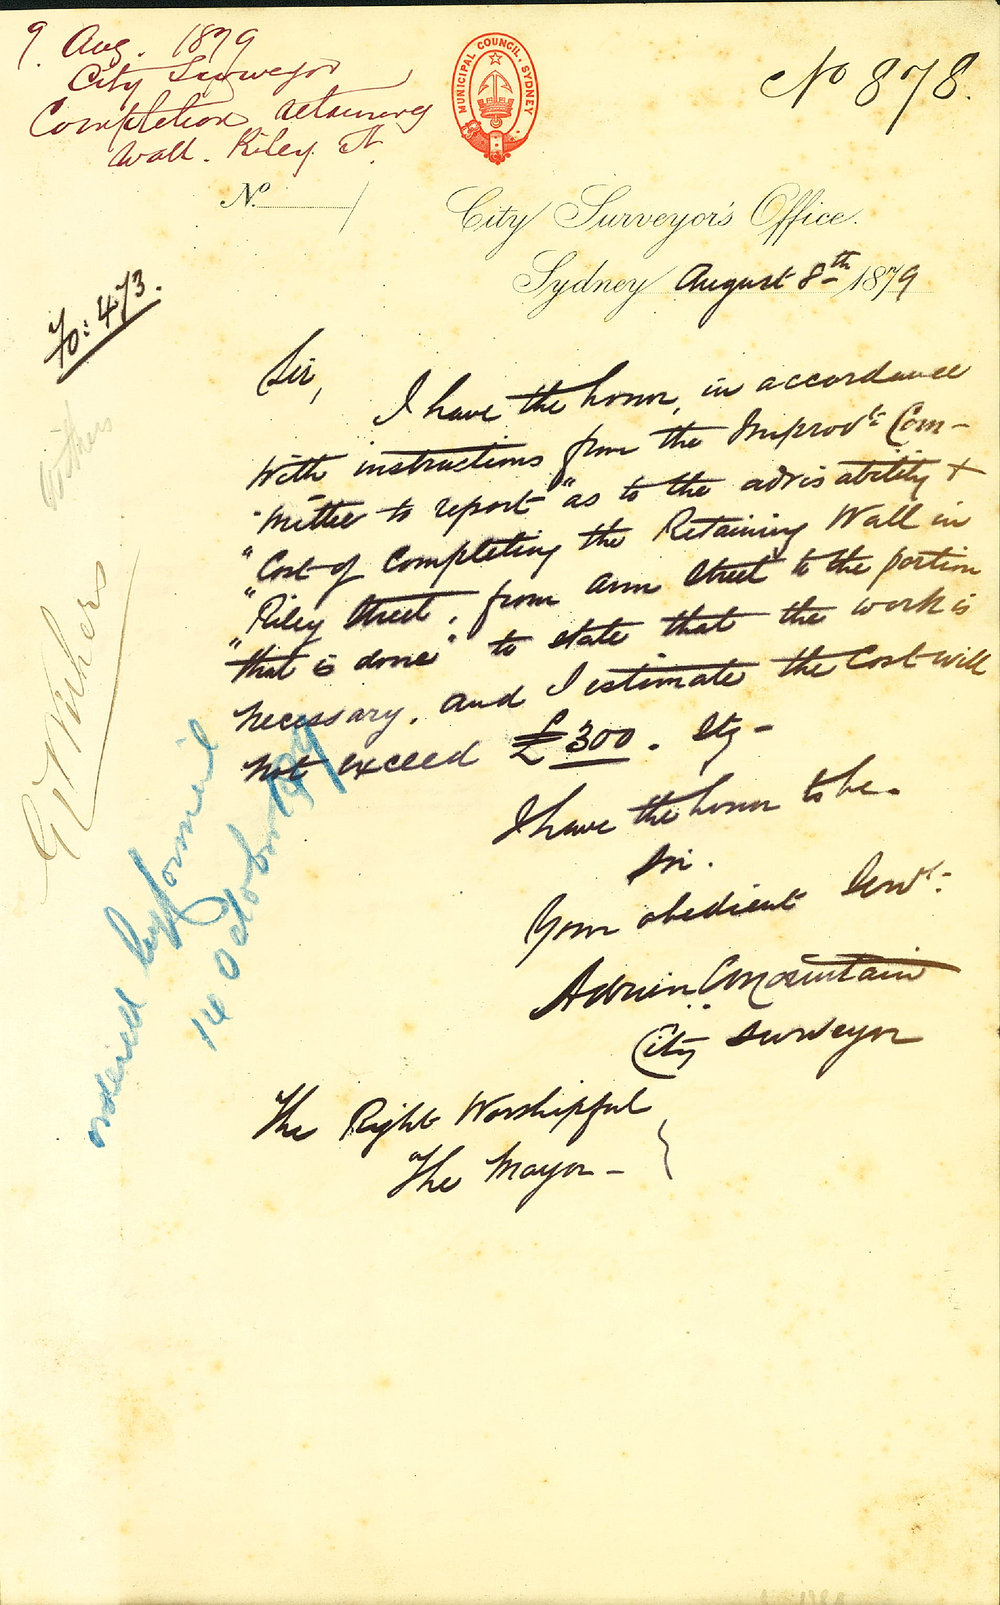 9 Aug. 1879
City Surveyor
Completion retaining
Wall. Riley St.
MUNICIPAL COUNCIL. SYDNEY
No 878.
No.
City Surveyor's Office.
Sydney August 8th 1879
Fo: 473.
Sir,
I have the honor, in accordance
With instructions from the Improvt. Com-
"mittee to report "as to the advisability &
"Cost of Completing the Retaining Wall in
"Riley Street, from Ann Street to the portion
"that is done" to state that the work is
necessary, and I estimate the Cost will
not exceed £300. Stg-
I have the honor to be.
Sir.
Your obedient Servt.
Adrien C Mountain
City Surveyor
The Right Worshipful
The Mayor -
Withers
G Withers
ordered by Council
14 October 79